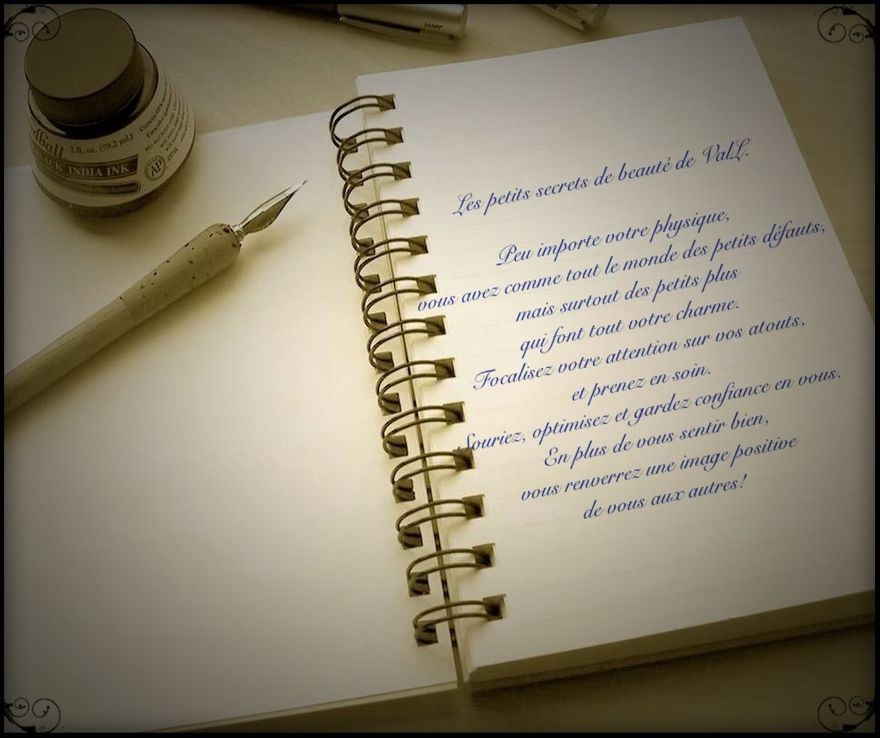 Les petits secrets de beauté de ValL.
Peu importe votre physique,
vous avez comme tout le monde des petits défauts,
mais surtout des petits plus
qui font tout votre charme.
Focalisez votre attention sur vos atouts,
et prenez en soin.
Souriez, optimisez et gardez confiance en vous.
En plus de vous sentir bien,
vous renverrez une image positive
de vous aux autres!
2 fl. oz. (59.2 mL)
BLACK INDIA INK
AP